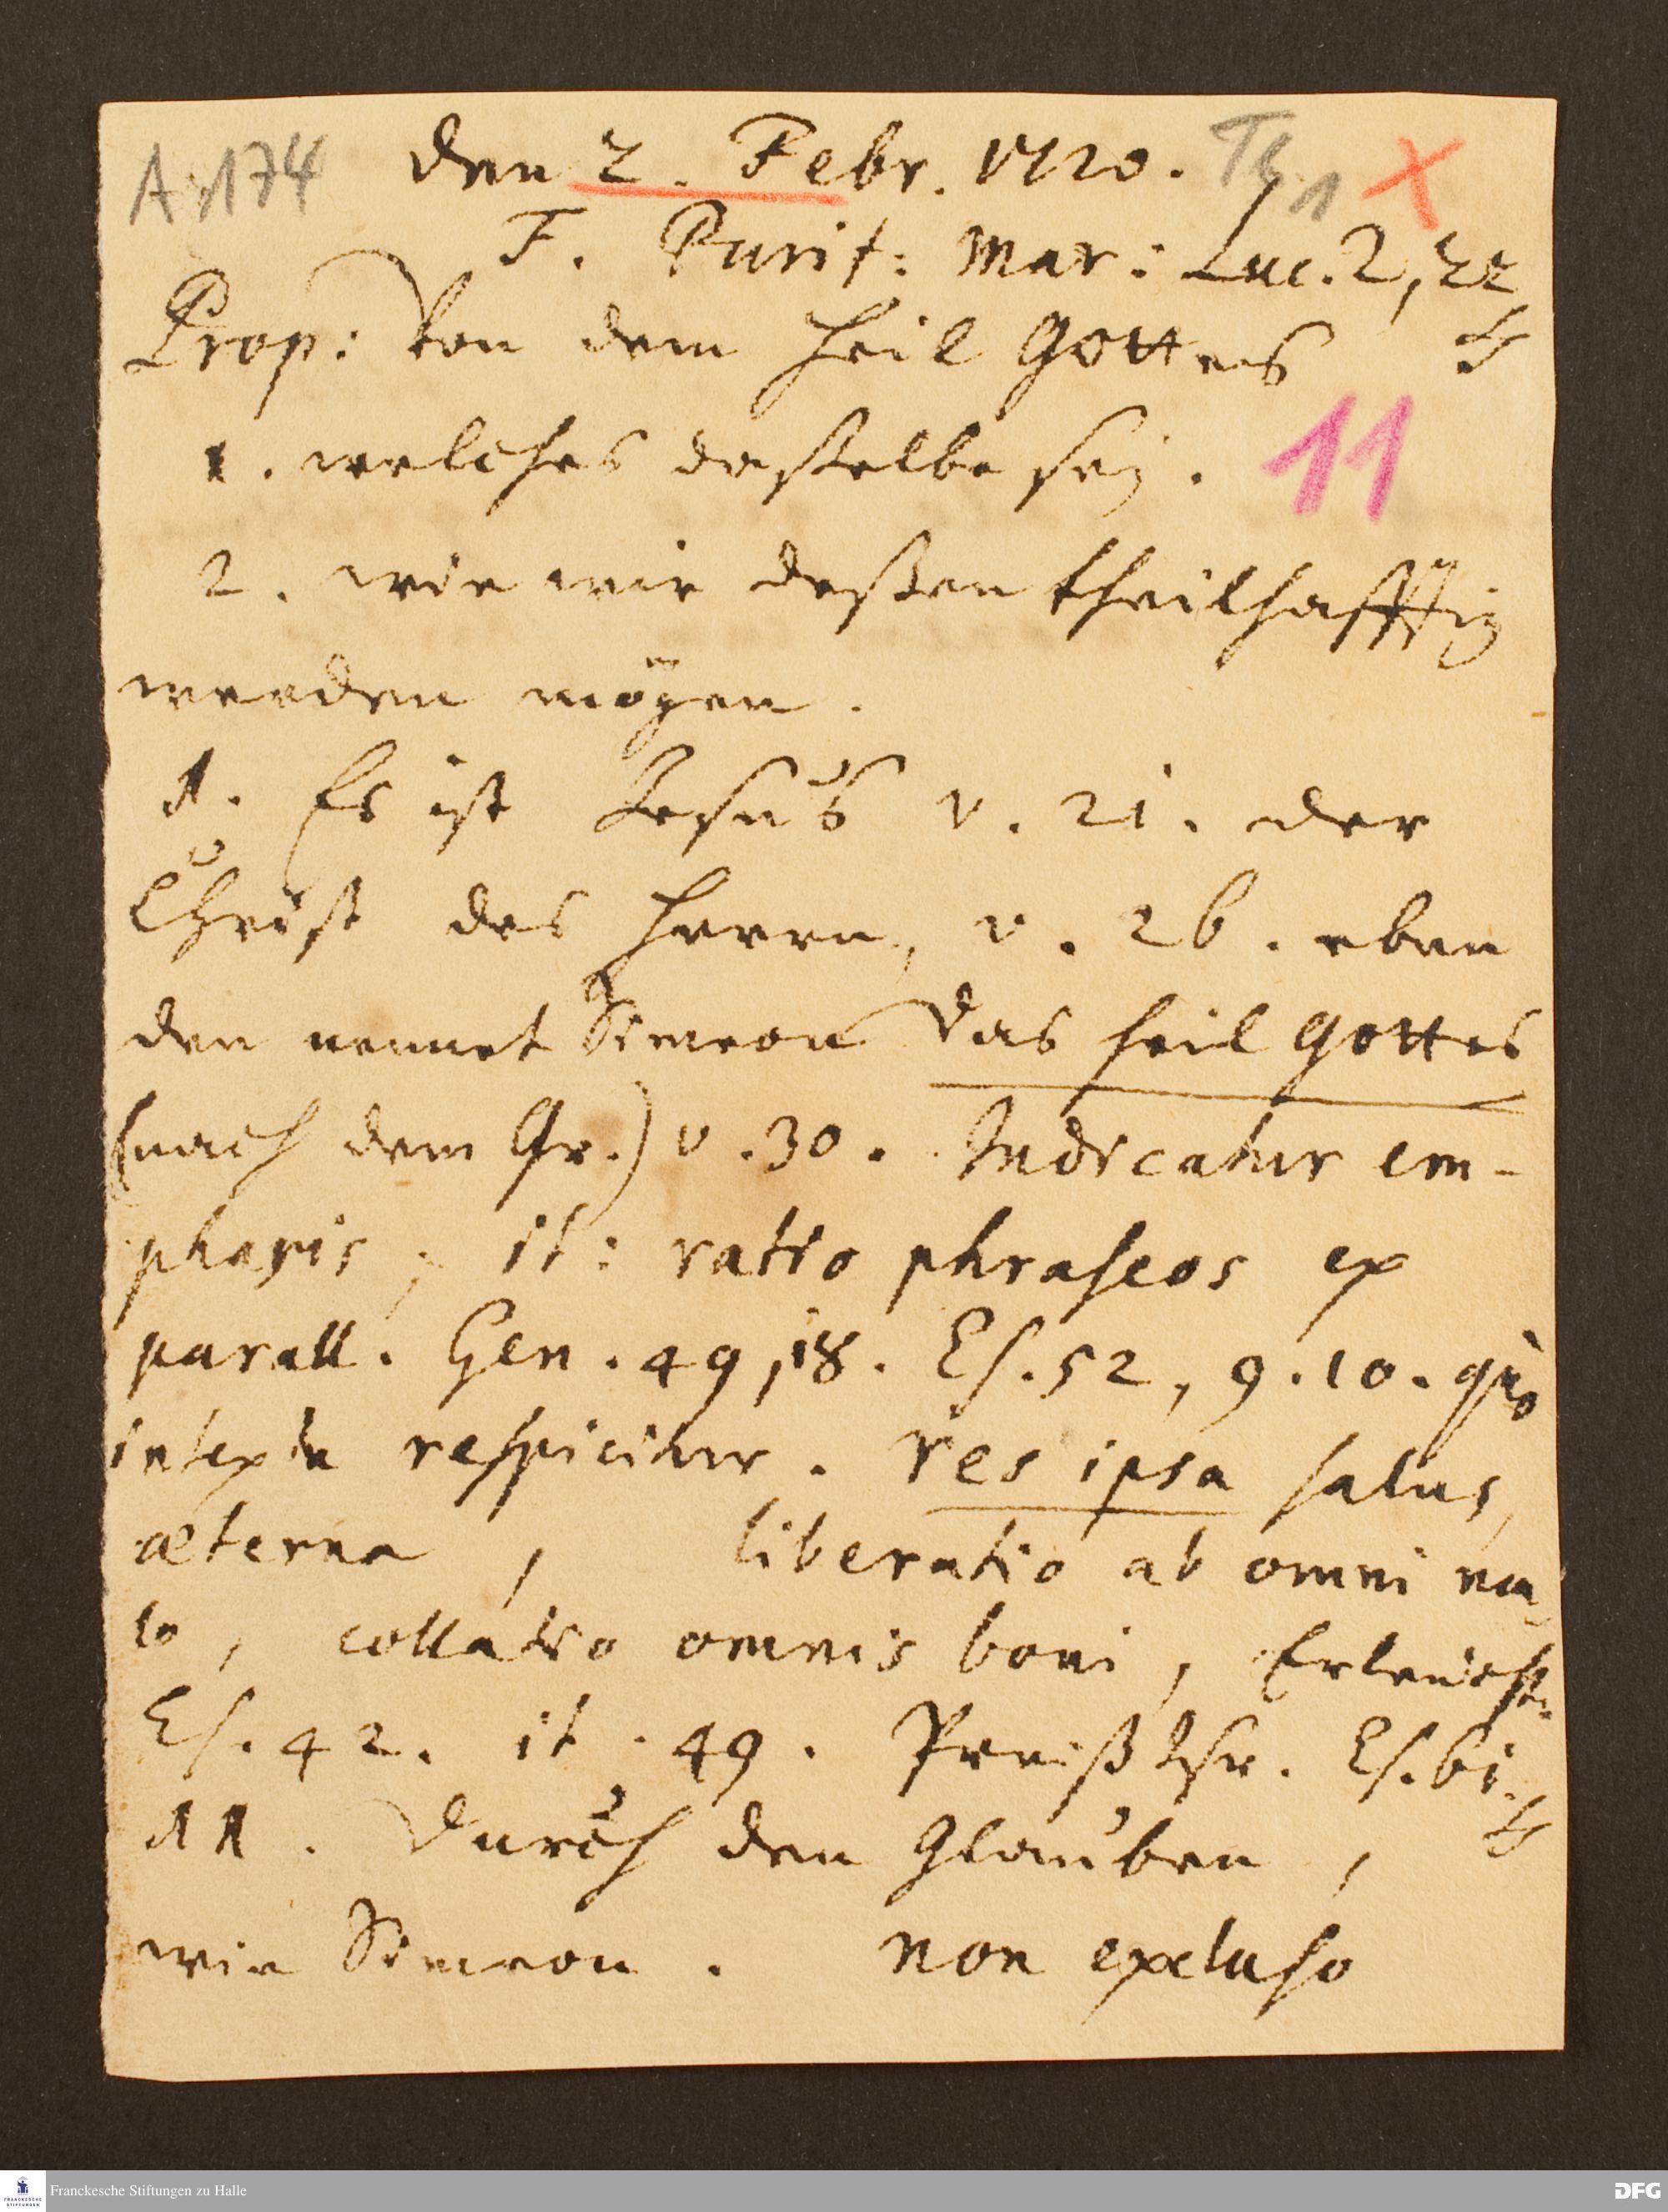 A:174 den 2. Febr. 1720. Th. 1 X
F. Purif: Mar: Luc. 2, 22
Prop: Von dem Heil Gottes
1. welches dasselbe sey. 11
2. wie wir deßen theilhafftig
werden mögen.
1. Es ist Jesus v. 21. der
Christ des Herrn, v. 26. eben
den nennet Simeon das Heil Gottes
(nach dem Gr.) v. 30. Indicatur em-
phasis, it: ratio phraseos ex
parall. Gen. 49, 18. Es. 52, 9. 10. quo
in textu respicitur. res ipsa salus,
æterna, liberatio ab omni ma-
lo, collatio omnis boni, Erleucht.
Es. 42. it. 49. Es. 61.
11. Durch den Glauben,
wie Simeon. non excluso
Franckesche Stiftungen zu Halle
FRANCKESCHE STIFTUNGEN
DFG